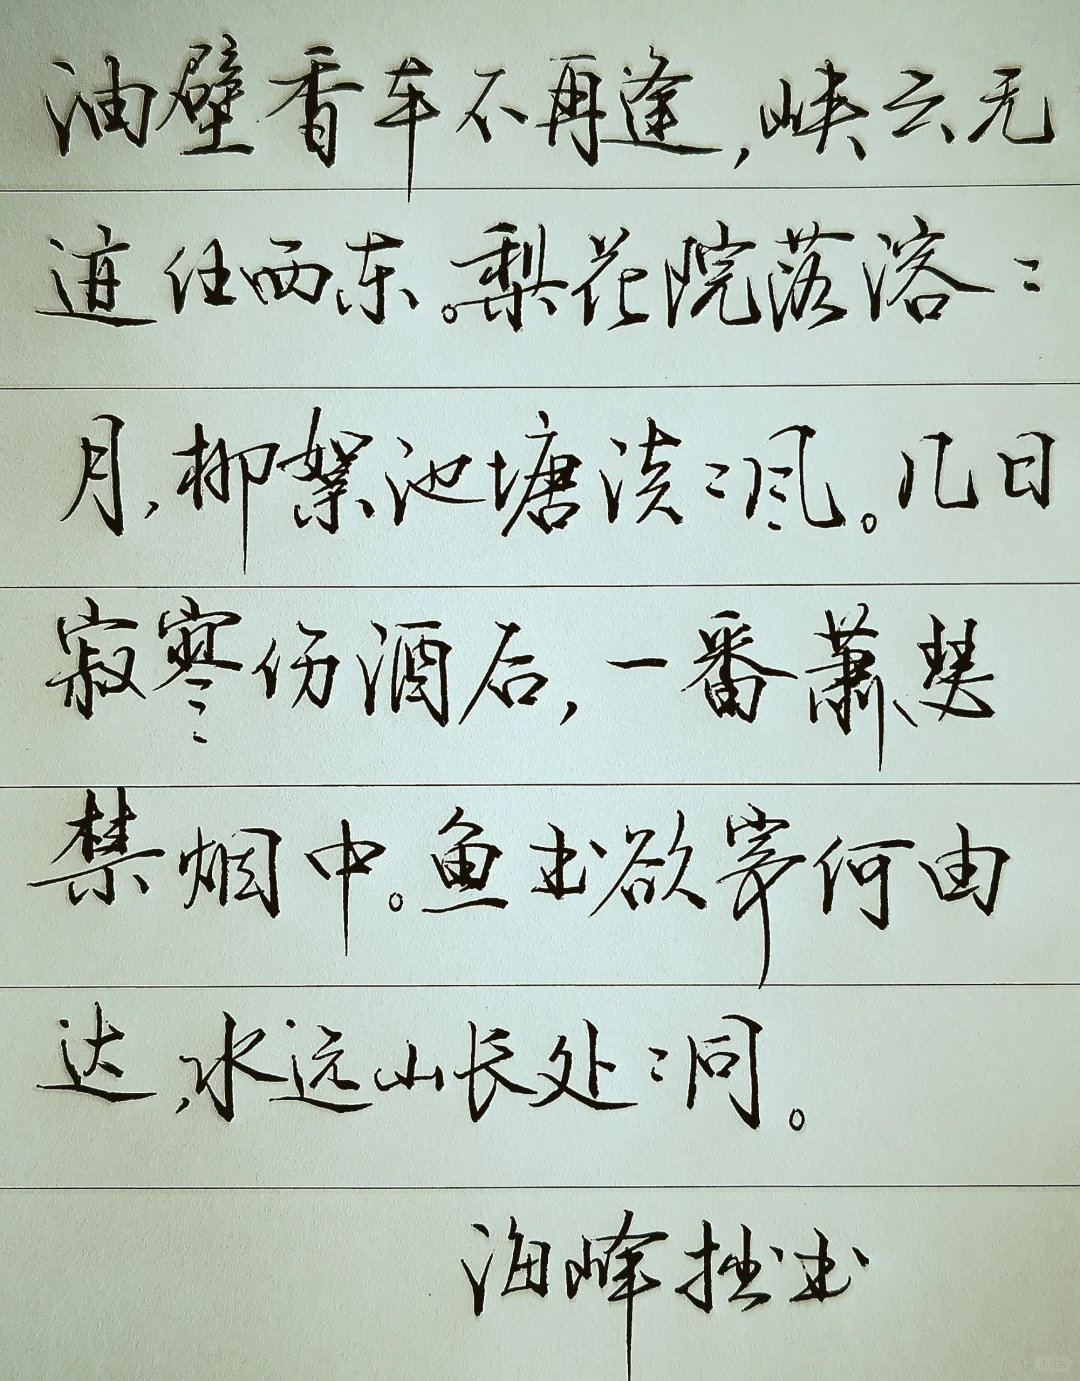 油壁香车不再逢,峡云无
迹任西东。梨花院落溶〻
月,柳絮池塘淡〻风。几日
寂寞伤酒后,一番萧瑟
禁烟中。鱼书欲寄何由
达,水远山长处〻同。
海峰拙书